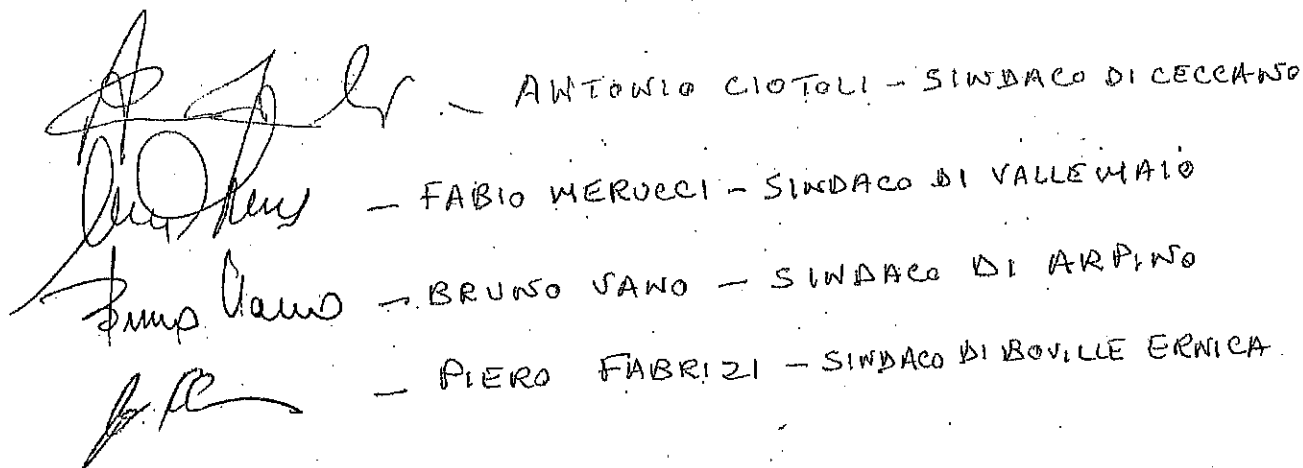 - ANTONIO CIOTOLI - SINDACO DI CECCANO
- FABIO MERUCCI - SINDACO DI VALLEMAIO
Bruno Vano - BRUNO VANO - SINDACO DI ARPINO
- PIERO FABRIZI - SINDACO DI BOVILLE ERNICA